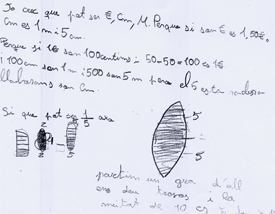 Jo crec que pot ser €, cm, M. Perque si son € es 1,50€.
Cm es 1m i 5cm.
Perque si 1€ son 100centims i 50-50=100 es 1€
i 100cm son 1m i 500 son 5m pero el 5 esta
son cm.
Si que pot 1/5
5
2 2 5
5
partim un gra d'all
en deu trossos i la
meitat de 10 es